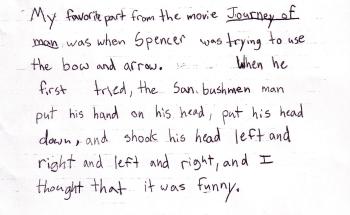 My favorite part from the movie Journey of
man was when Spencer was trying to use
the bow and arrow. When he
first tried, the San bushmen man
put his hand on his head, put his head
down, and shook his head left and
right and left and right, and I
thought that it was funny.